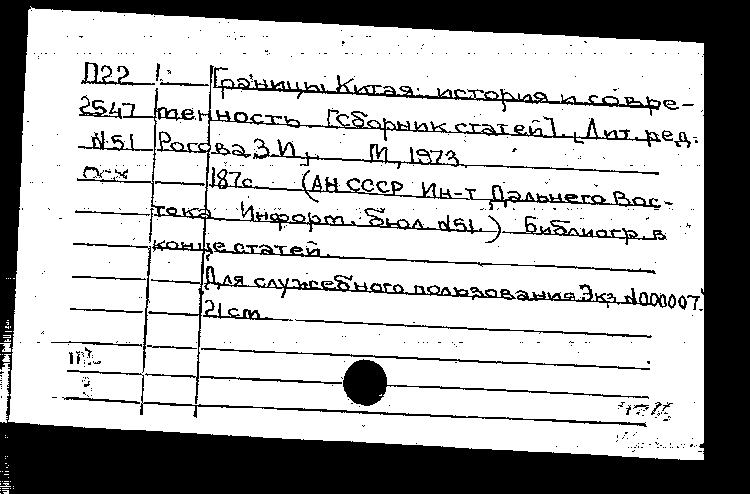 П22 Границы Китая: история и совре-
2547 менность. [Сборник статей]. [Лит. ред.
N51 Рогова З.И.]. М., 1973.
осх 187с. (АН СССР Ин-т Дальнего Вос-
тока Информ. бюл. N51.) Библиогр. в
конце статей.
Для служебного пользования. Экз. N000007.
21 cm.